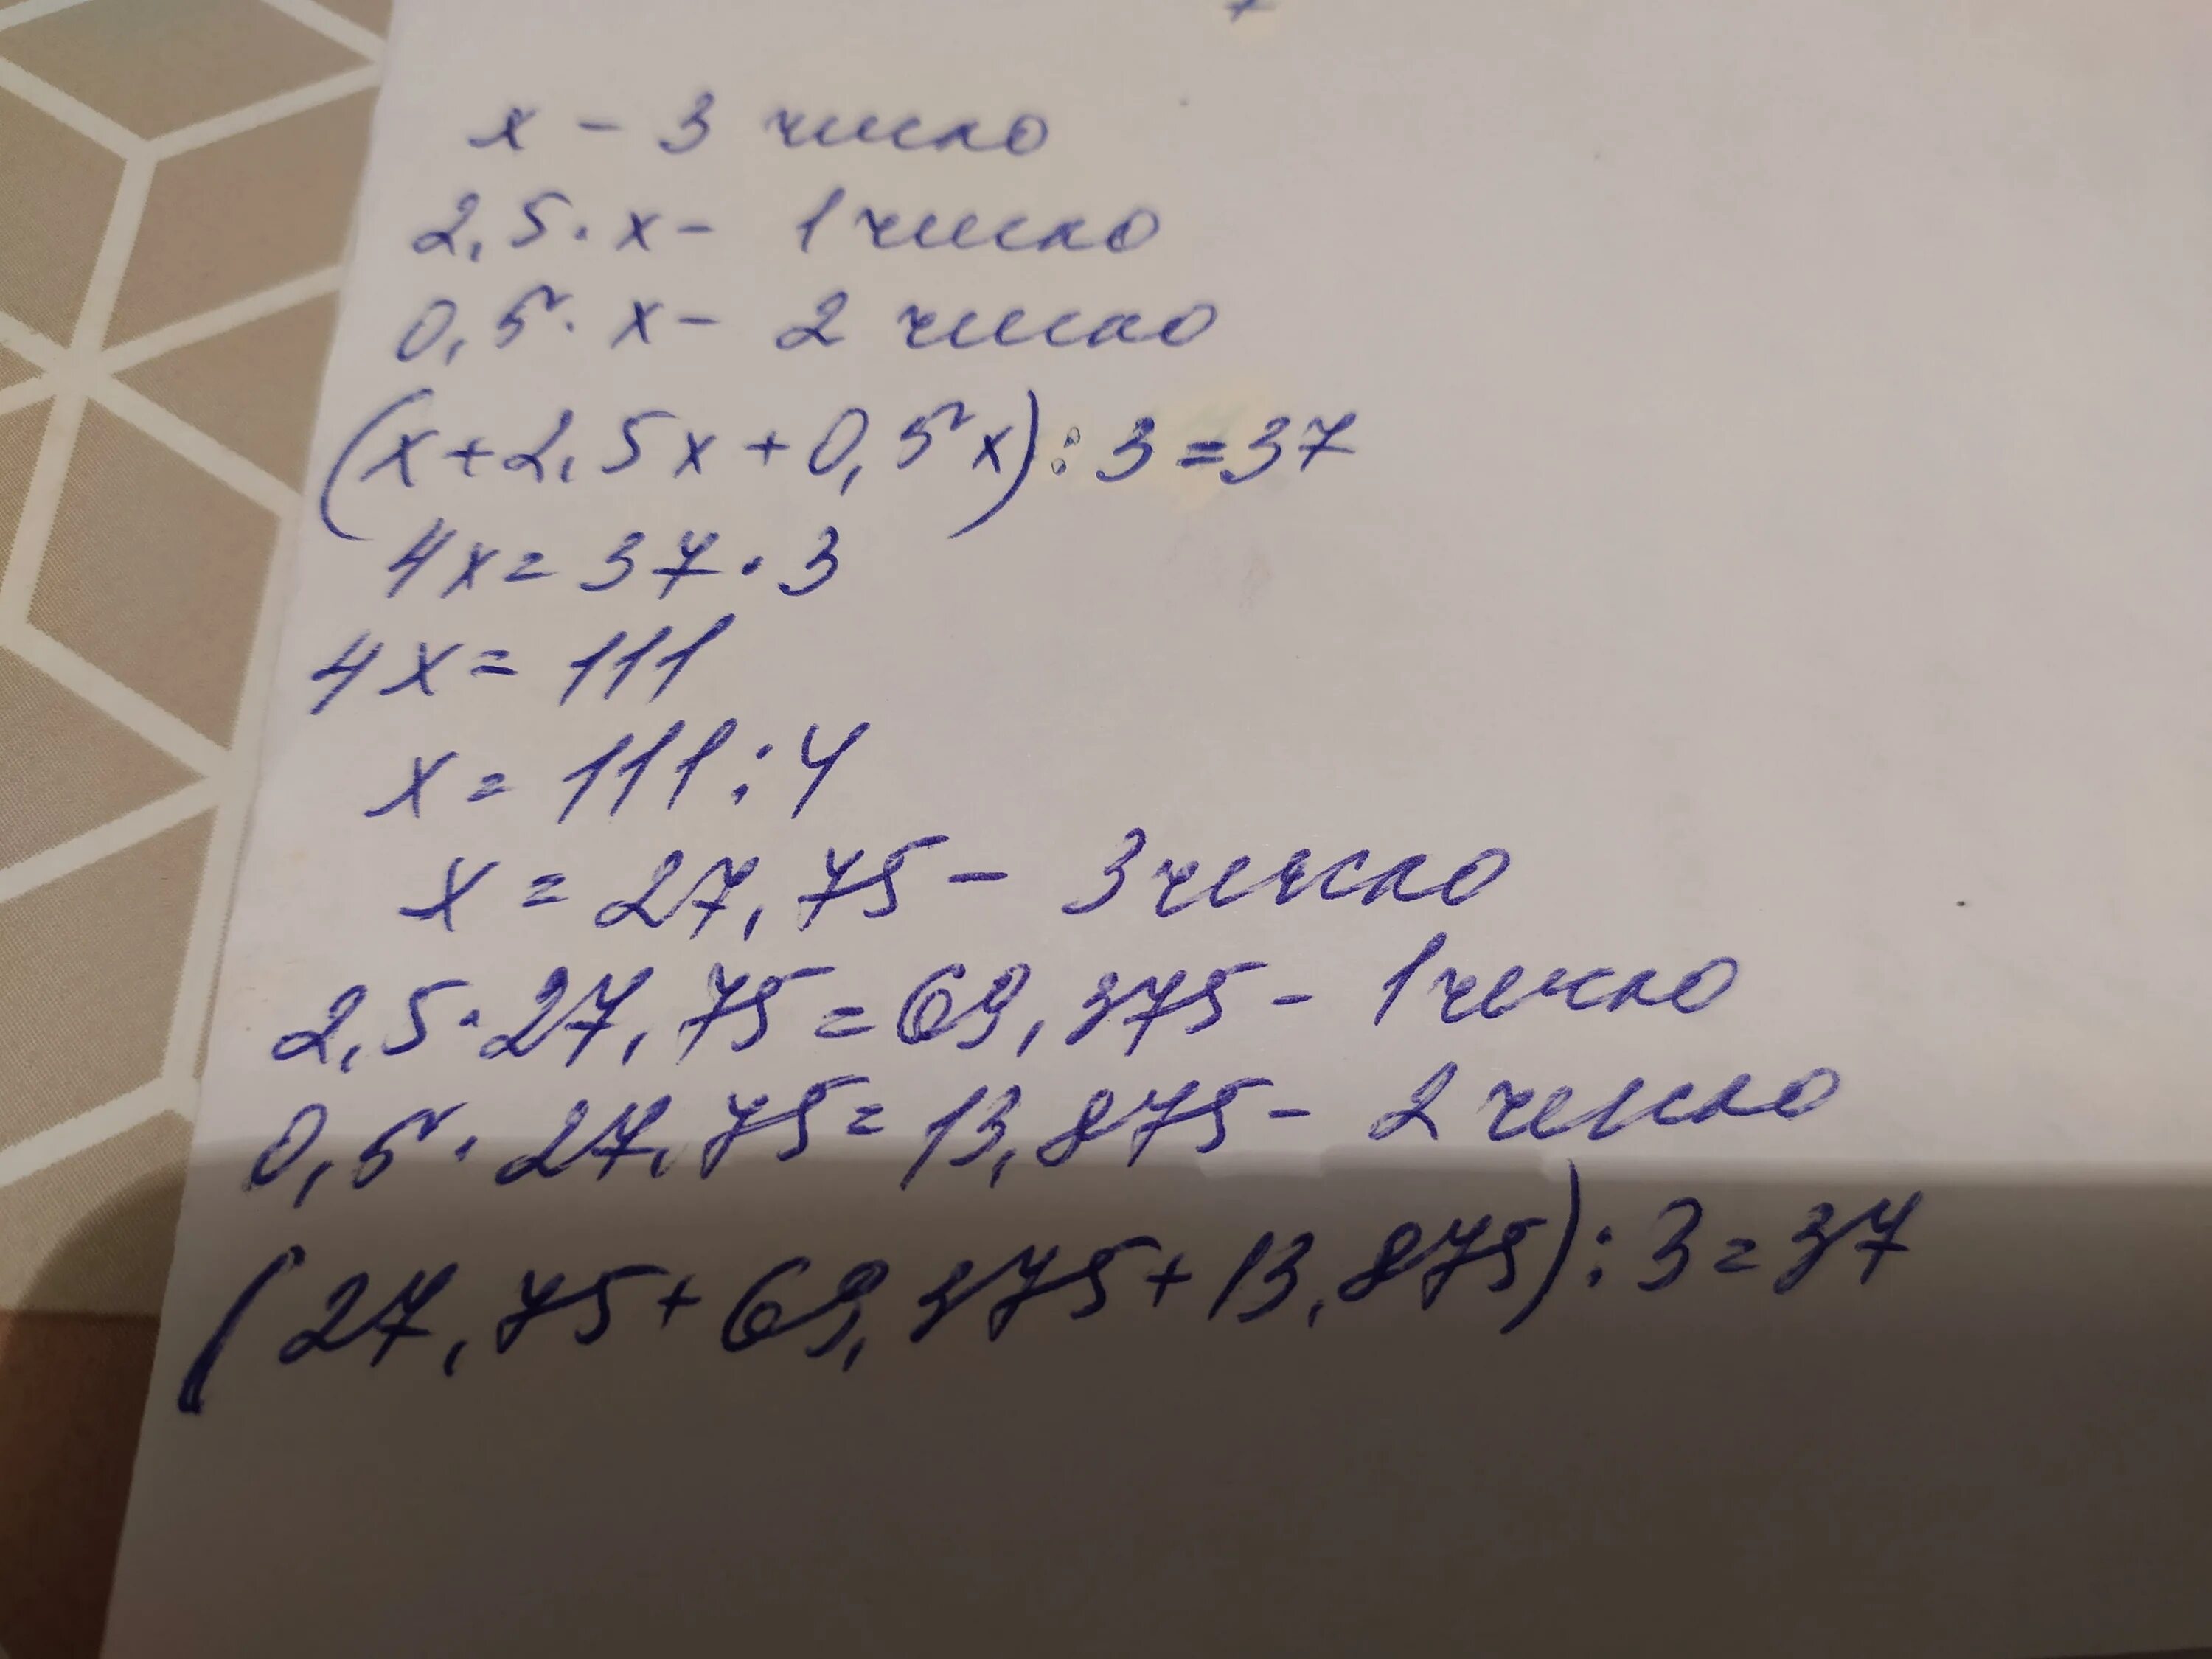 x - 3 число
2,5·x - 1 число
0,5·x - 2 число
(x+2,5x+0,5x):3=37
4x=37·3
4x=111
x=111:4
x=27,75 - 3 число
2,5·27,75=69,375 - 1 число
0,5·27,75=13,875 - 2 число
(27,75+69,375+13,875):3=37